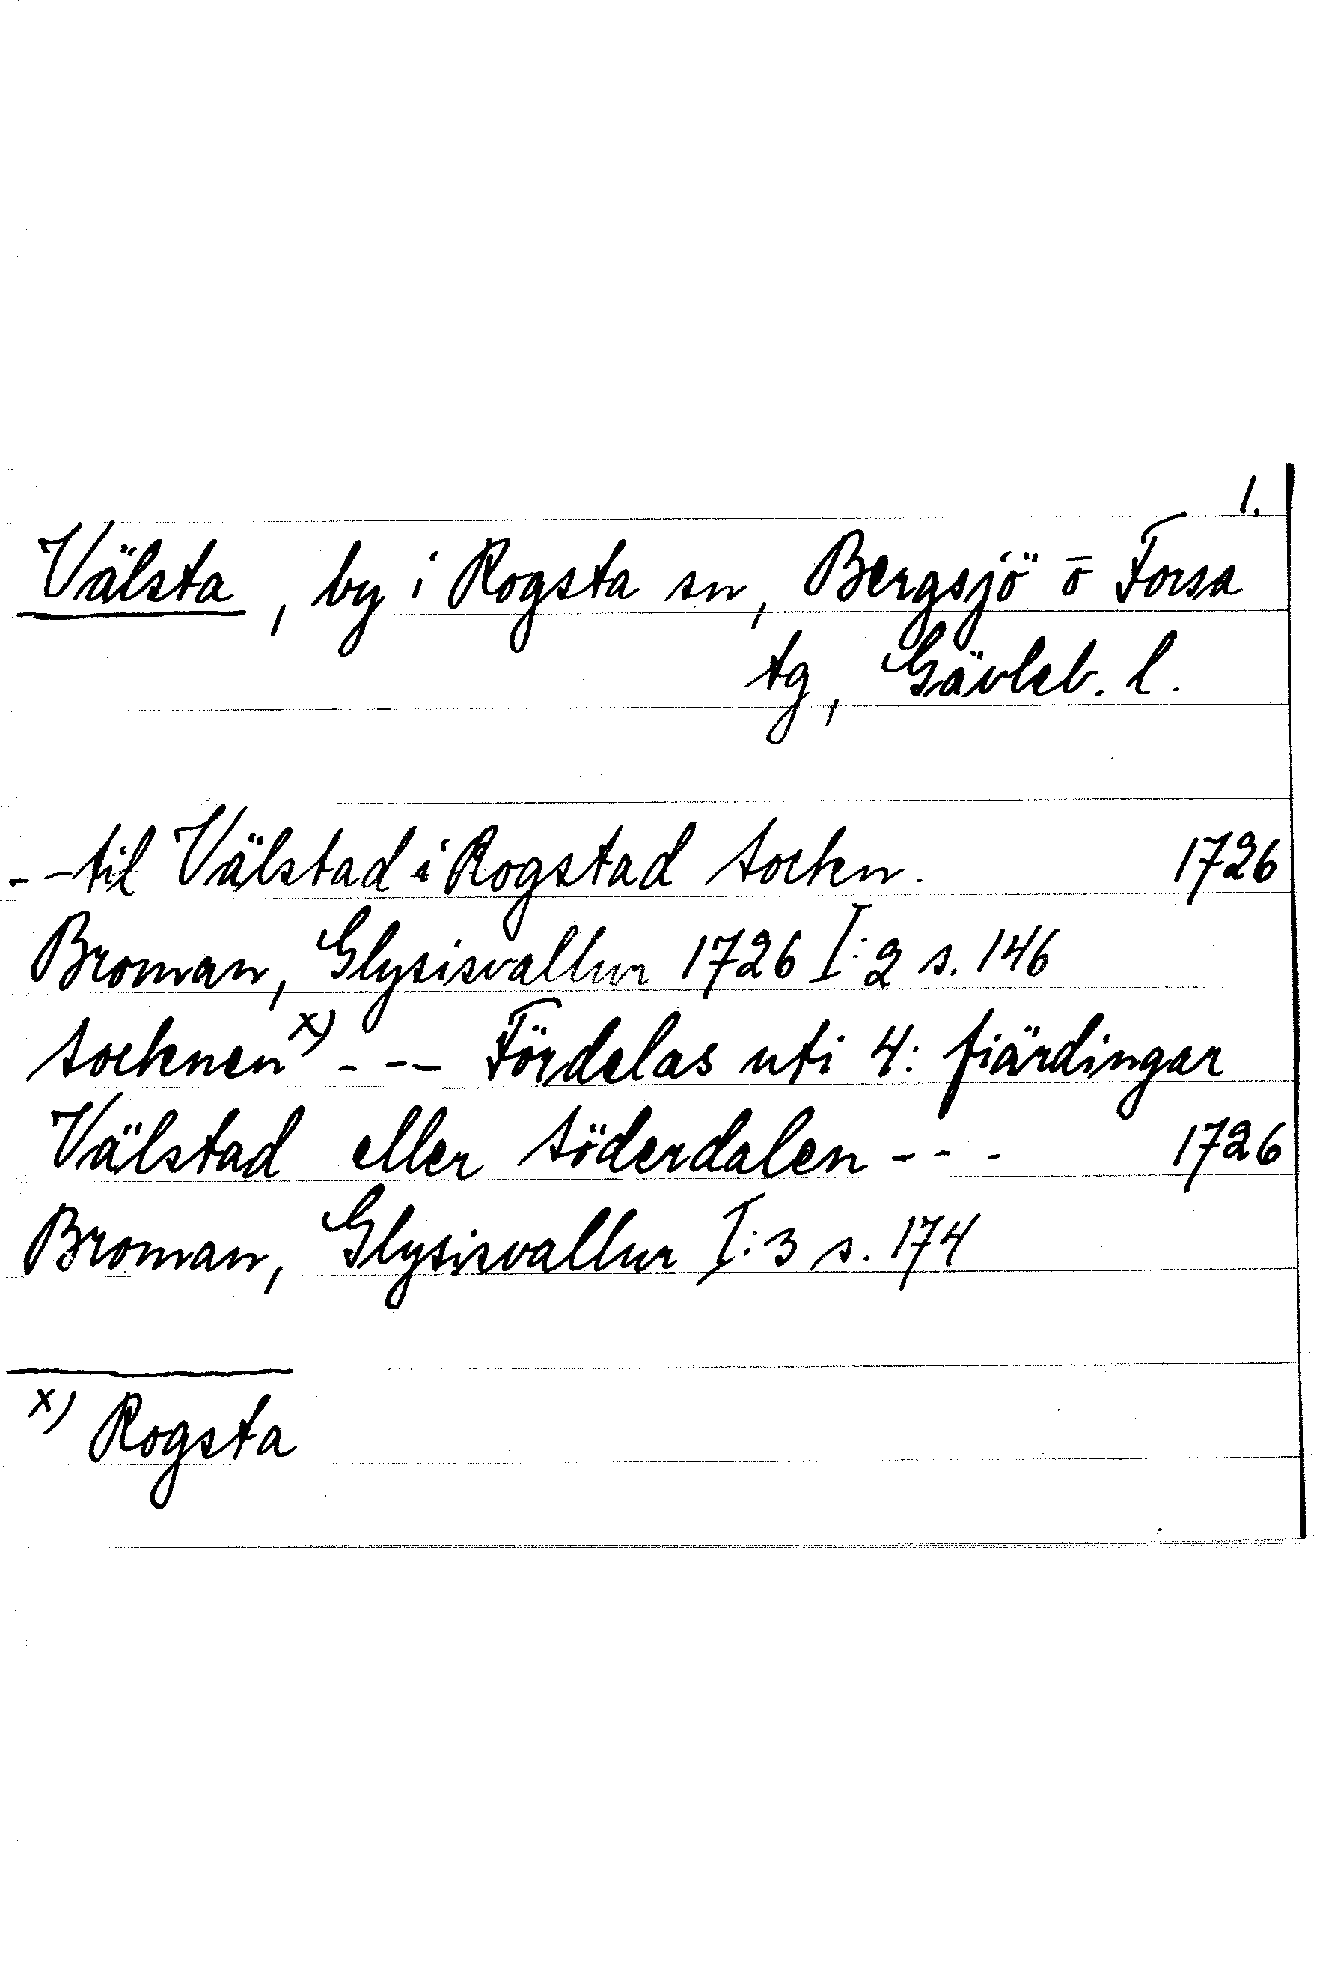 1.
Välsta, by i Rogsta sn, Bergsjö o Forsa
tg, Gävleb. l.
- - til Välstad i Rogstad socken. 1726
Broman, Glysisvallur 1726 I:2 s. 146
socknen x) - - - Fördelas uti 4: fiärdingar
Välstad eller söderdalen - - - 1726
Broman, Glysisvallur I:3 s. 174
x) Rogsta